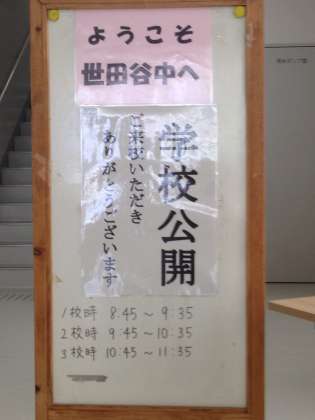 ようこそ
世田谷中へ
学校公開
ご来校いただき
ありがとうございます
1校時 8:45～9:35
2校時 9:45～10:35
3校時 10:45～11:35